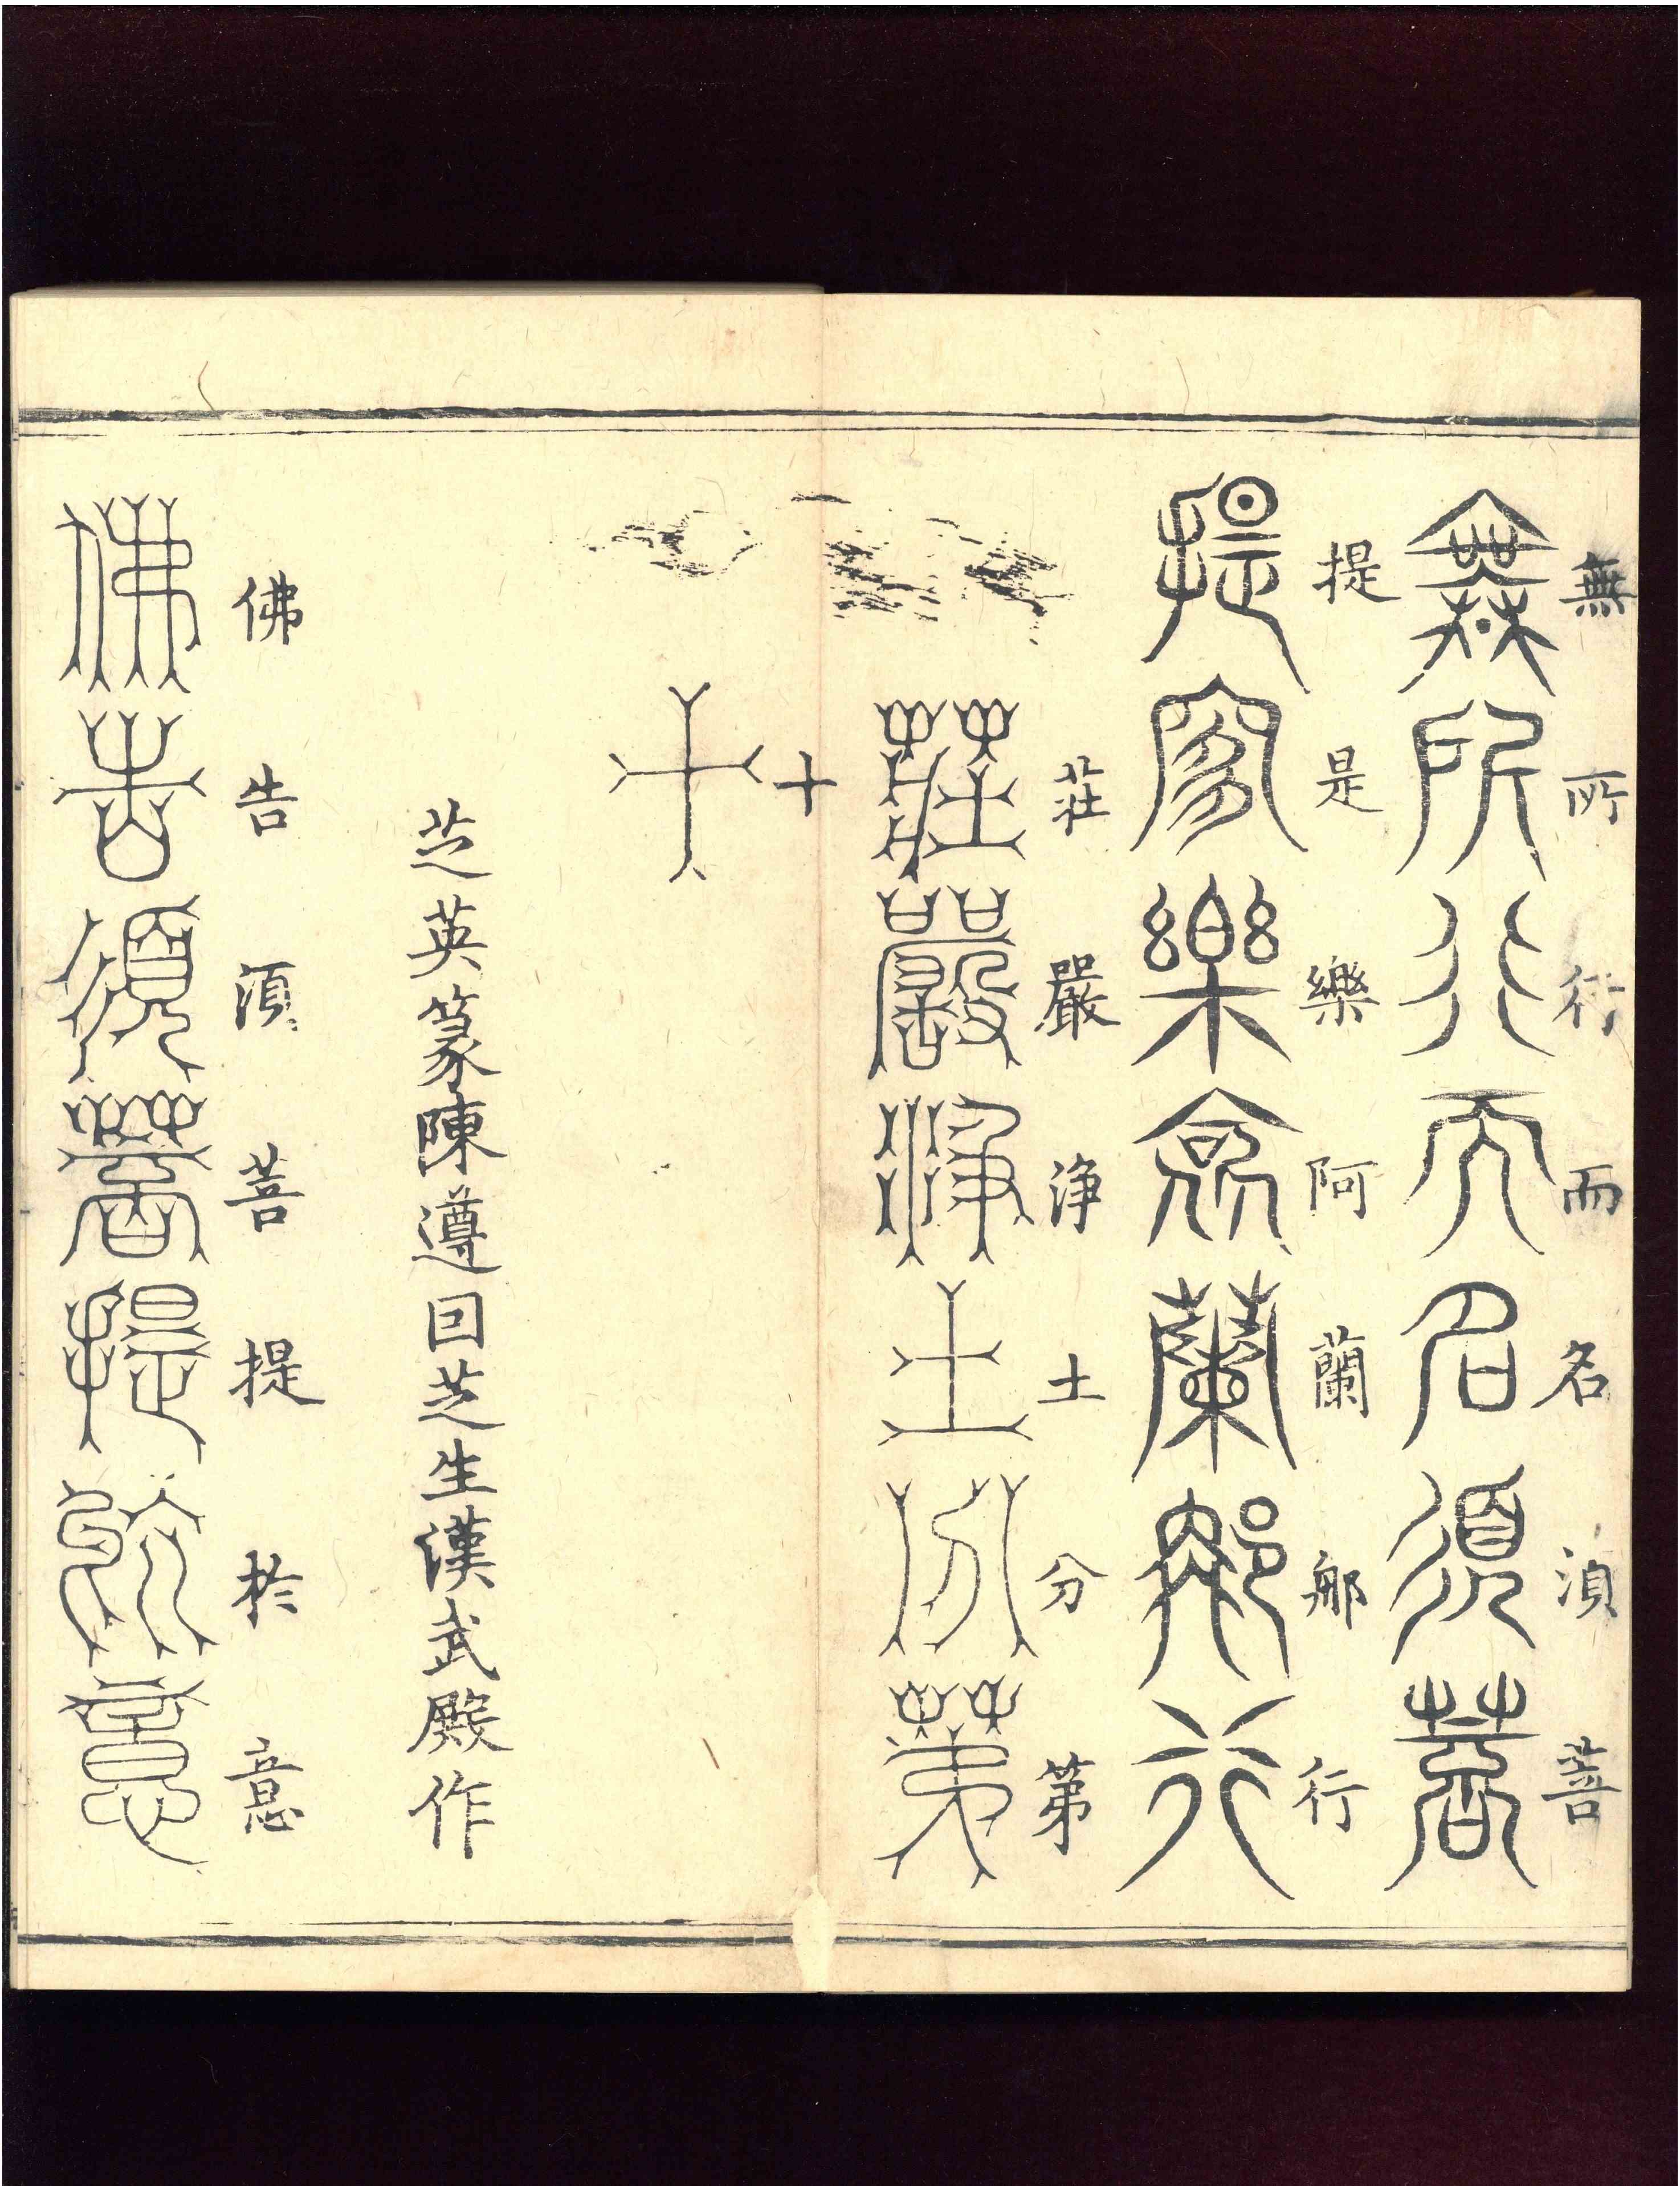 無所行而名須菩
無所行而名湏菩
提是樂阿蘭那行
提是樂阿蘭那行
莊嚴淨土分第
莊嚴浄土分第
十
十
芝英篆陳遵因芝生漢武殿作
佛告須菩提於意
佛告湏菩提於意